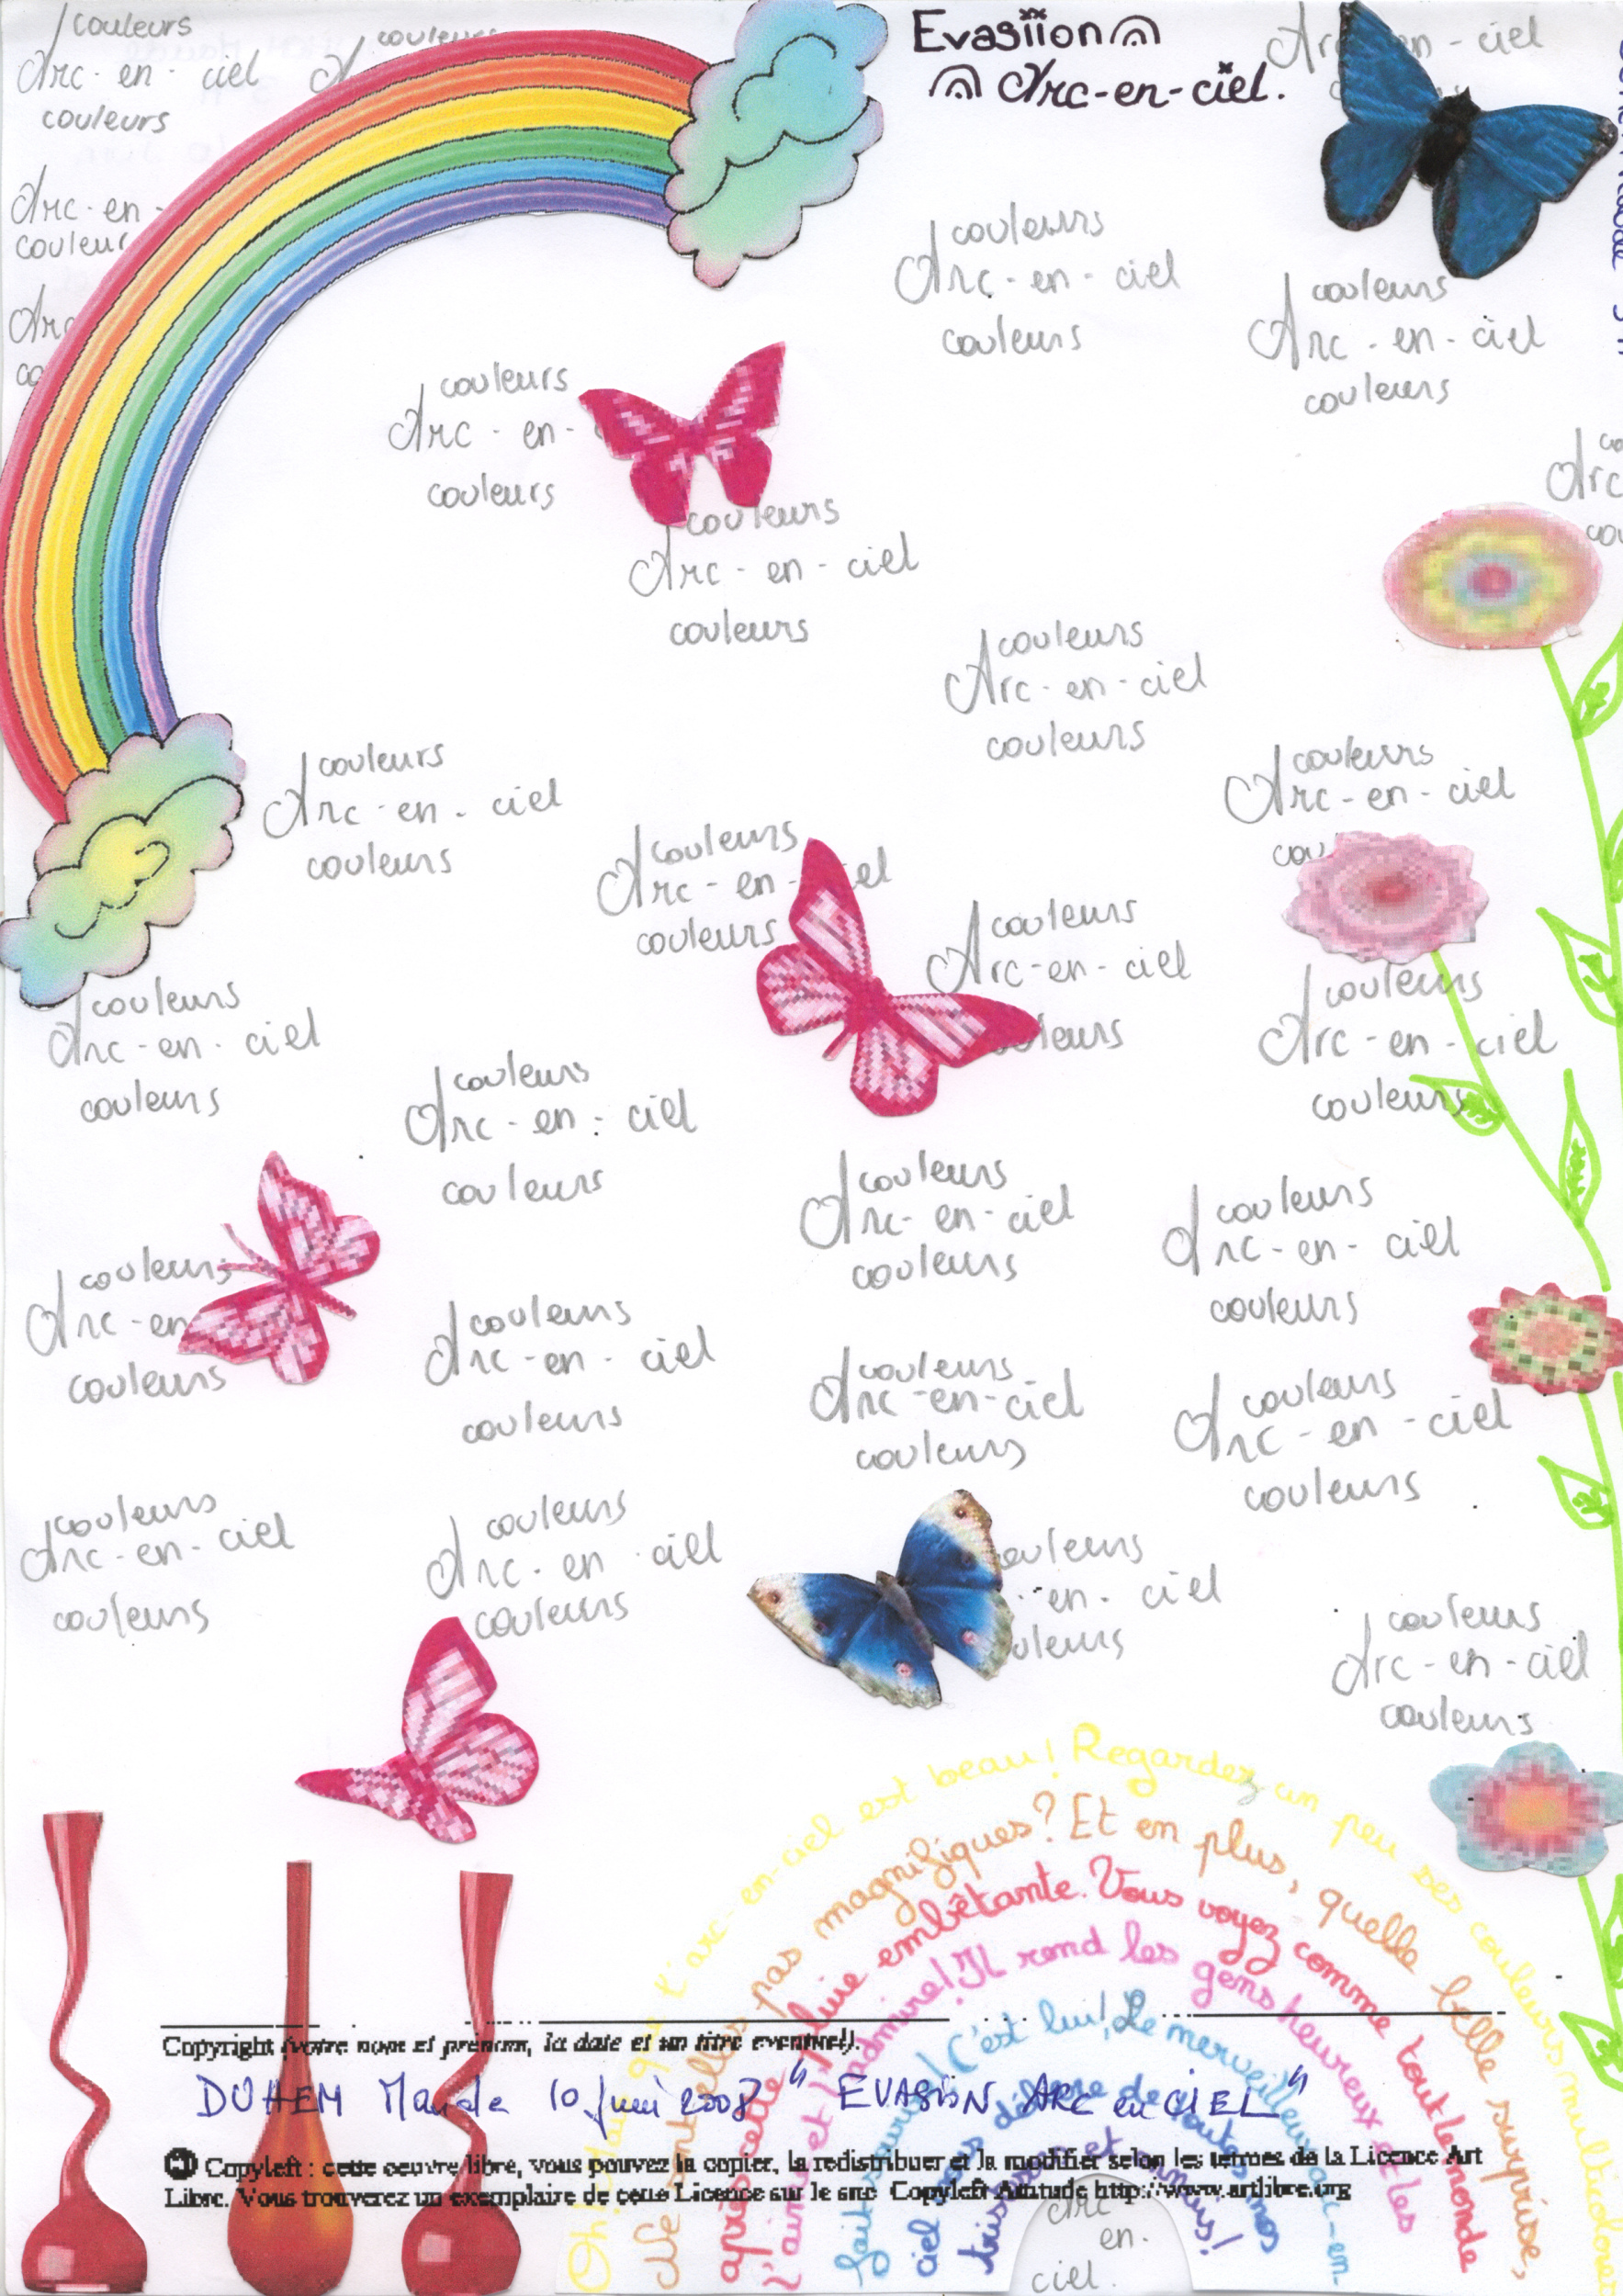 Evasïion
Arc-en-ciel.
couleurs
Arc-en-ciel
couleurs
couleurs
Arc-en-
couleur
Arc
couleurs
Arc-en-ciel
couleurs
couleurs
Arc-en-ciel
couleurs
couleurs
Arc-en-
couleurs
couleurs
Arc-en-ciel
couleurs
couleurs
Arc-en-ciel
couleurs
couleurs
Arc-en-ciel
couleurs
Arc-en-ciel
couleurs
couleurs
Arc-en-
couleurs
couleurs
Arc-en-ciel
couleurs
Arc-en-ciel
couleurs
couleurs
Arc-en-ciel
couleurs
couleurs
Arc-en-ciel
couleurs
couleurs
Arc-en-ciel
couleurs
couleurs
Arc-en-ciel
couleurs
couleurs
Arc-en-
couleurs
couleurs
Arc-en-ciel
couleurs
couleurs
Arc-en-ciel
couleurs
couleurs
Arc-en-ciel
couleurs
couleurs
Arc-en-ciel
couleurs
couleurs
Arc-en-ciel
couleurs
en-ciel
couleurs
Arc-en-ciel
couleurs
Oh! que l'arc-en-ciel est beau! Regardez un peu ses couleurs multicolores
Ne sont elles pas magnifiques? Et en plus, quelle belle surprise,
après cette pluie embêtante. Vous voyez comme tout le monde
l'aime et l'admire! Il rend les gens heureux et les
fait sourire! C'est lui! Le merveilleux arc-en-
ciel nous délivre de toutes nos
tristesses et ennuis!
Arc
en.
ciel.
Copyright (votre nom et prénom, la date et un titre eventuel).
DUHEM Maude 10 Juin 2008 " EVASÏON ARC en CIEL "
Copyleft : cette oeuvre libre, vous pouvez la copier, la redistribuer et la modifier selon les termes de la Licence Art
Libre. Vous trouverez un exemplaire de cette Licence sur le site Copyleft Attitude http://www.artlibre.org